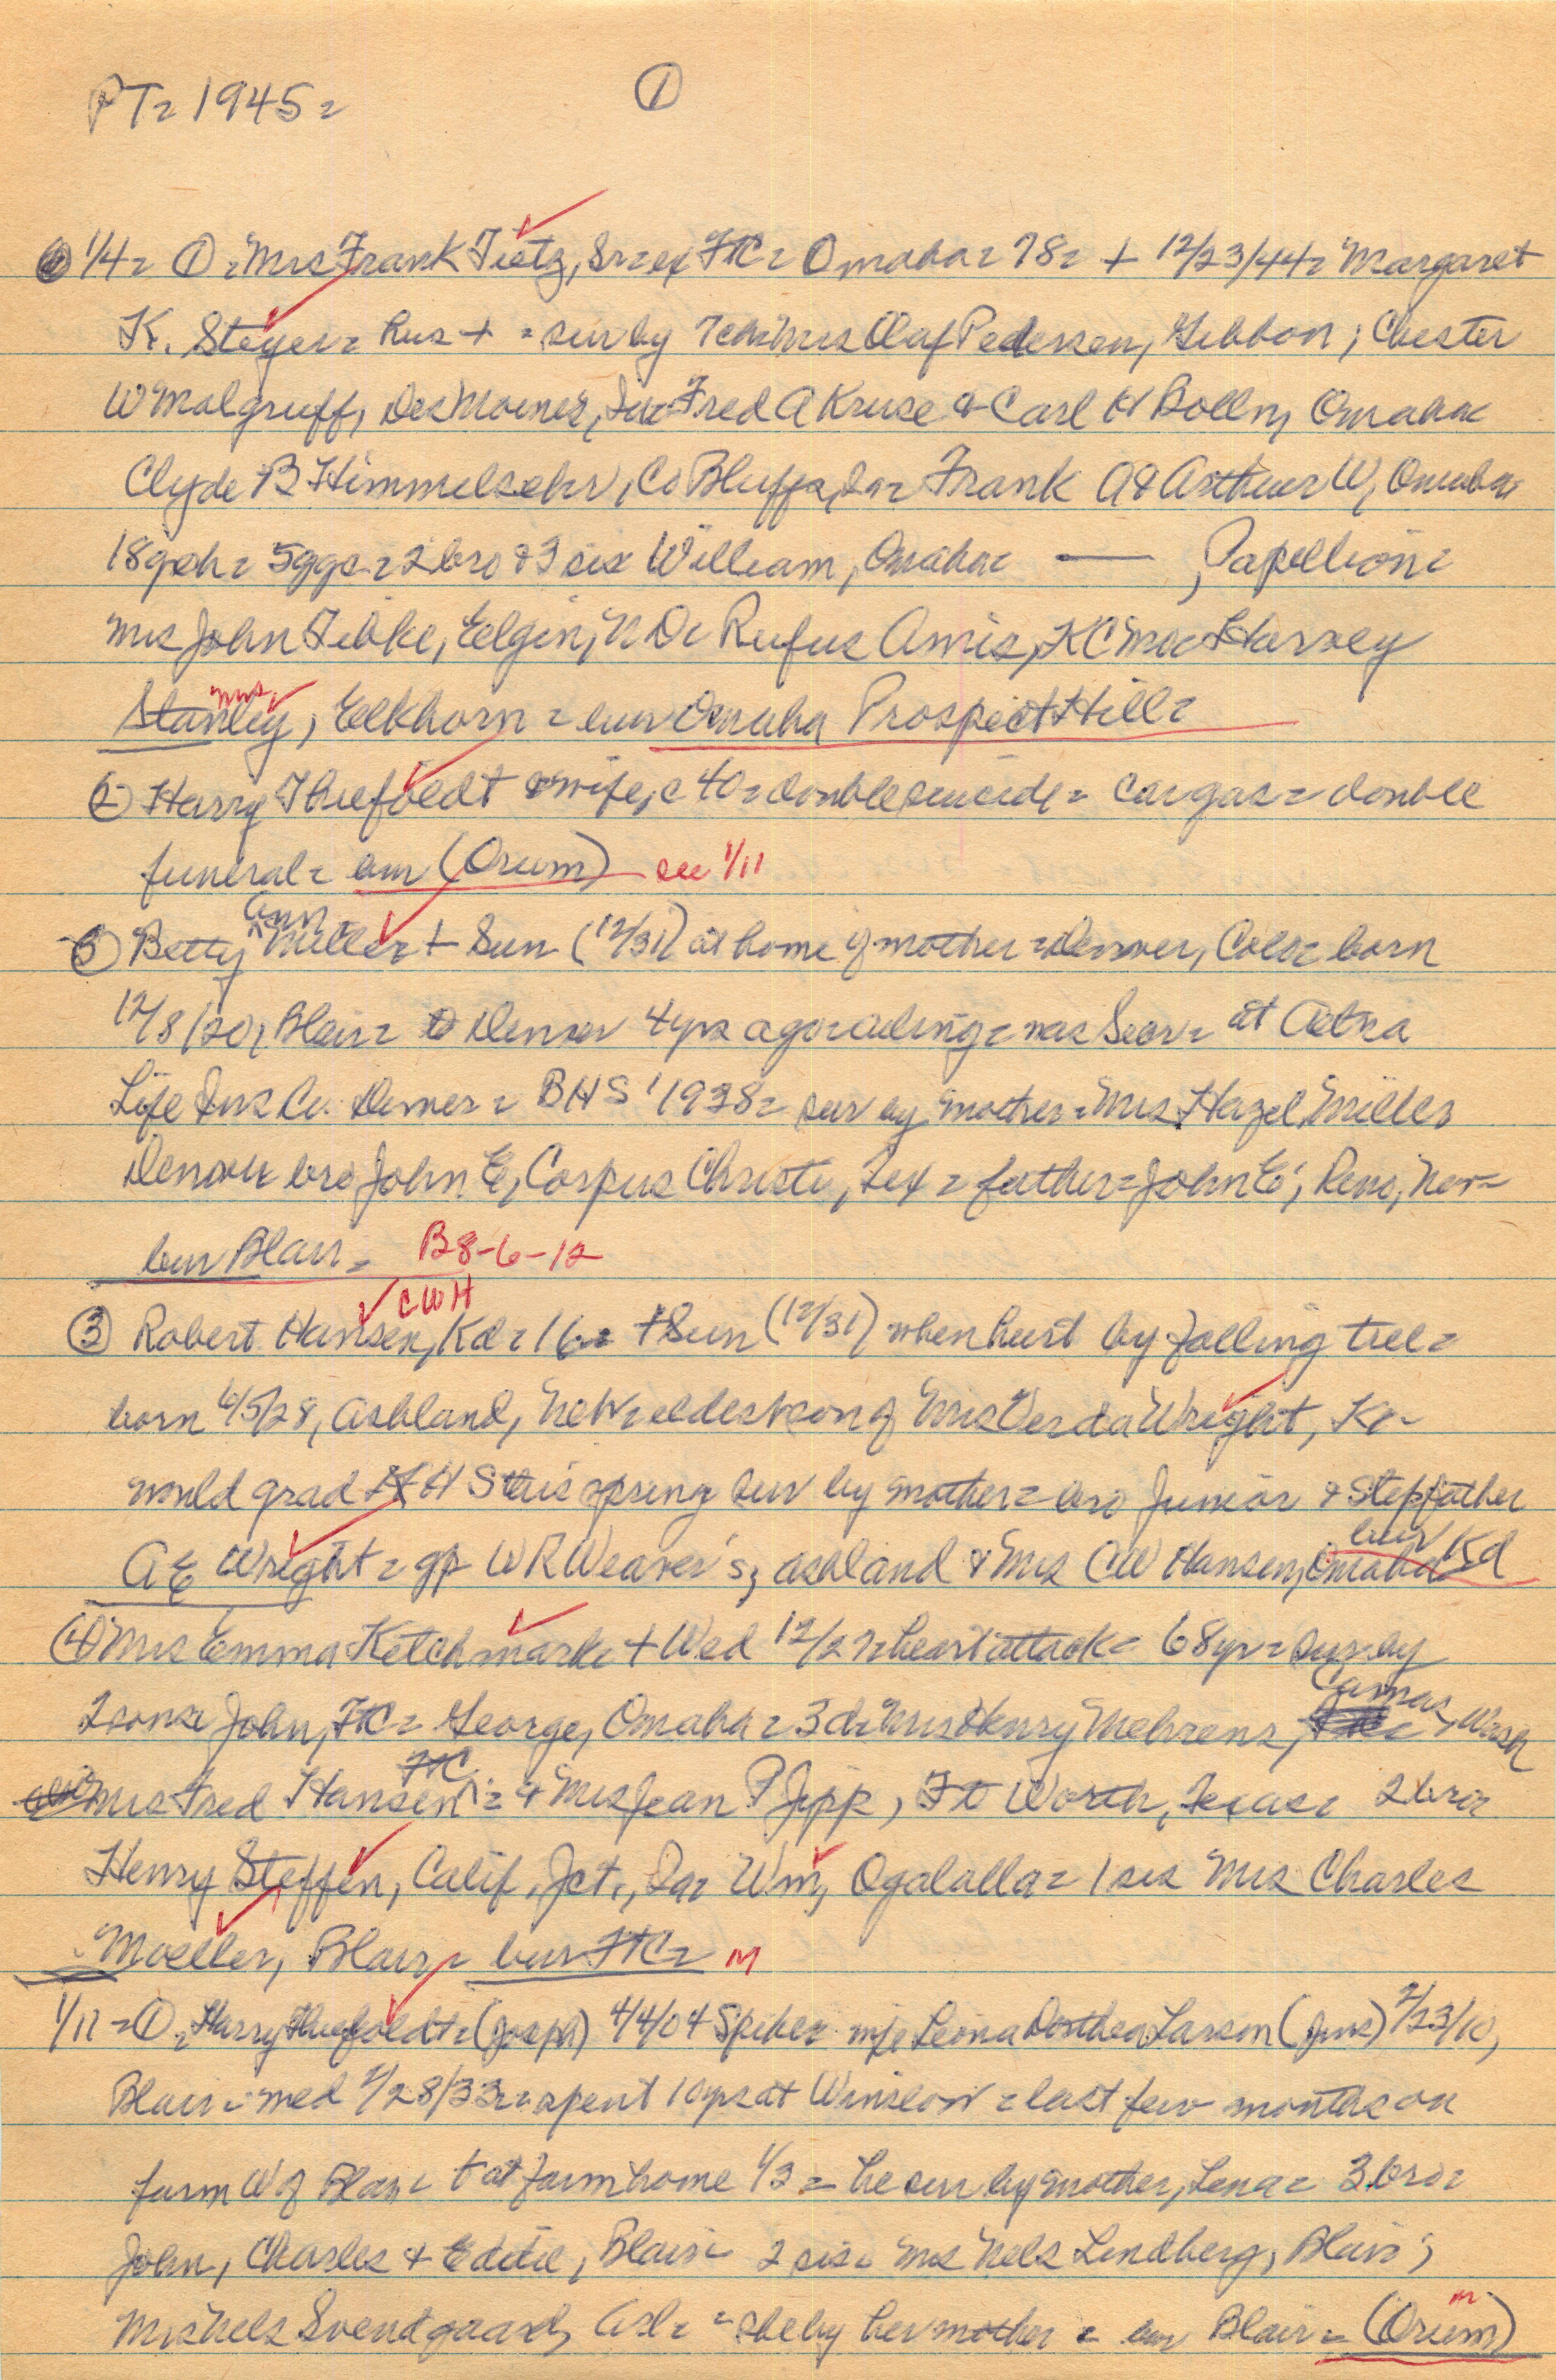 PT= 1945=
①
1/4= ①= Mrs Frank Tietz, Sr= ex FTC= Omaha= 78= + 12/23/44= Margaret
K. Steyer= hus + = sur by 7ch= Mrs Olaf Pedersen, Gibbon; Chester
W Malgruff, Des Moines, Ia= Fred A Kruse & Carl H Bolln, Omaha=
Clyde B Himmelsehr, Co Bluffs, Ia= Frank A & Arthur W, Omaha=
18gch= 5ggc= 2bro & 3 sis William, Omaha= — , Papillion=
Mrs John Tibke, Elgin, N D= Rufus Amis, KC Mo= Harvey
mrs
Stanley, Elkhorn = bur Omaha Prospect Hill=
② Harry Thiefoldt & wife, c 40= double suicide = car gas= double
funeral= bur (Orum) see 1/11
ann
③ Betty Miller + Sun (12/31) at home of mother= Denver, Colo= born
12/8/20, Blair= to Denver 4yrs ago= was Secr= at Aetna
Life Ins Co. Denver= BHS '1938= sur by mother= Mrs Hazel Miller
Denver bro John E, Corpus Christi, Tex = father= John E; Reno, Nev=
bur Blair= B8-6-12
CWH
③ Robert Hansen, Kd= 16= + Sun (12/31) when hurt by falling tree=
born 6/5/28, Ashland, Neb= eldest son of Mrs Verda Wright, Ke-
would grad HS this spring sur by mother= bro Junior & stepfather
A E Wright= gp W R Weaver's, Ashland & Mrs CW Hansen, Omaha bur Kd
④ Mrs Emma Ketchmark + Wed 12/27 heart attack= 68yr= sur by
2 sons= John, FTC= George, Omaha= 3d= Mrs Henry Mehrens, Camas, Wash
Mrs Fred Hansen FTC = & Mrs Jean P Jipp, Ft Worth, Texas= 2 bro=
Henry Steffen, Calif. Jct., Ia= Wm, Ogalalla= 1 sis Mrs Charles
Moeller, Blair= bur FTC= M
1/11 = ①= Harry Thiefoldt= (Joseph) 4/4/04 Spiker= wife Leona Dorthea Larson (Jens) 2/23/10,
Blair= med 2/28/33= spent 10yrs at Winslow = last few months on
farm W of Blair= + at farm home 1/3 = he sur by mother, Lena= 3 bro=
John, Charles & Eddie, Blair= 2 sis= Mrs Nels Lindberg, Blair;
Mrs Nels Svendgaard, Arl= = she by her mother = bur Blair= (Orum)